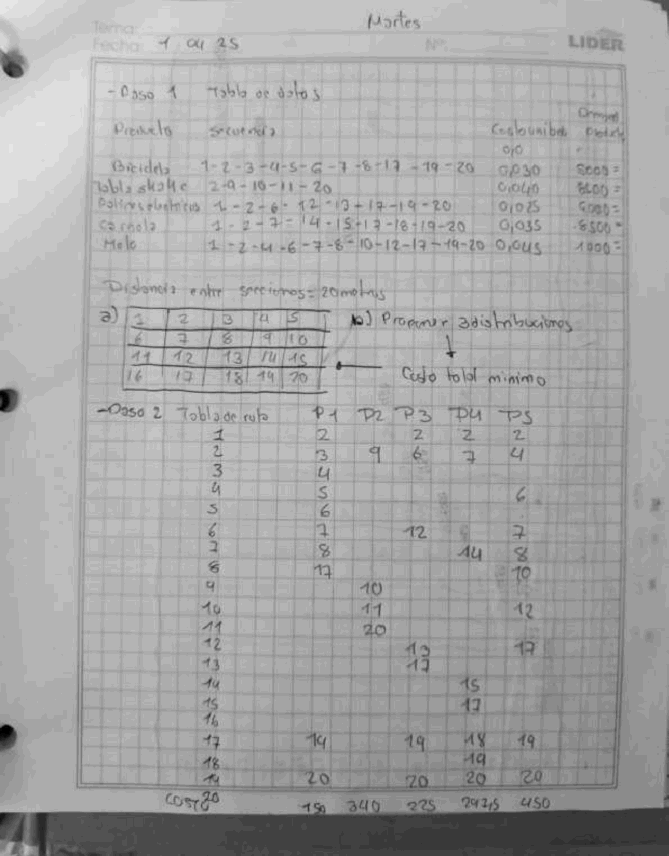 Martes
Tema:
Fecha: 1 04 25 Nº: LIDER
- Paso 1 Tabla de datos
Demand
Producto secuencia Costo unitario
0,0
Bicicleta 1-2-3-4-5-6-7-8-17-19-20 0,030 5000=
Tabla skate 2-9-10-11-20 0,040
1-2-6-12-13-17-19-20 0,025
1-2-7-14-15-17-18-19-20 0,035 8500=
Moto 1-2-4-6-7-8-10-12-17-19-20 0,045
Distancia entre secciones = 20 metros
a) 1 2 3 4 5
6 7 8 9 10
11 12 13 14 15
16 17 18 19 20
b) Proponer 3 distribuciones
↓
Costo total minimo
- Paso 2 Tabla de ruta P1 P2 P3 P4 P5
1 2 2 2 2
2 3 9 6 7 4
3 4
4 5 6
5 6
6 7 12 7
7 8 14 8
8 17 10
9 10
10 11 12
11 20
12 13 17
13 17
14 15
15 17
16
17 19 19 18 19
18 19
19 20 20 20 20
20
COSTO 150 340 225 297,5 450